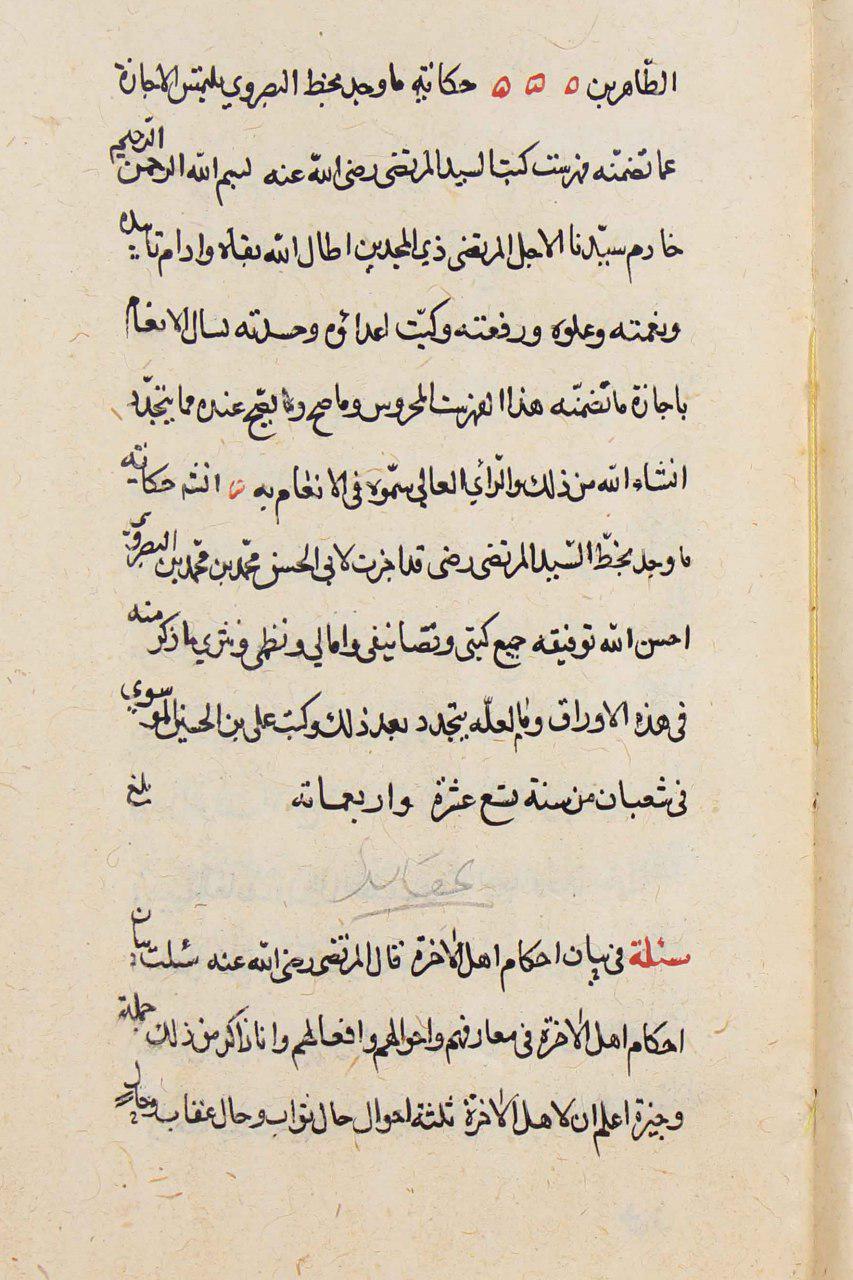 الطّاهرين ه ه ه حكاية ما وجد بخط البصروي يلتمس الاجازة
عما تضمّنه فهرست كتب السيد المرتضى رضى اللّه عنه بسم اللّه الرحمن الرّحيم
خادم سيّدنا الاجل المرتضى ذي المجدين اطال اللّه بقاه وادام تاييده
ونعمته وعلوه ورفعته وكبّت اعدائه وحسدته يسال الانعام
باجازة ما تضمنّه هذا الفهرست المحروس وما صح وما يصّح عنده مما يتجدّد
انشاء اللّه من ذلك والرّأي العالي سمّوه فى الانعام به انشه حكاية
ما وجد بخطّ السّيد المرتضى رضى قد اجزت لابى الحسن محّمد بن محّمد بن البصروىّ
احسن اللّه توفيقه جميع كتبى وتصانيفى وامالي ونظمى ونثري ما ذكر منه
فى هذه الاوراق وما لعلّه يتجدد بعد ذلك وكتب على بن الحسين الموسوي
فى شعبان من سنة سبع عشرة واربعمائة بلغ
سئلة فى بيان احكام اهل الاخرة قال المرتضى رضى اللّه عنه سئلت بيان
احكام اهل الاخرة فى معارفهم واحوالهم وافعالهم وانا ذاكر من ذلك جملة
وجيزة اعلم ان لاهل الاخرة ثلثة احوال حال ثواب وحال عقاب وحال